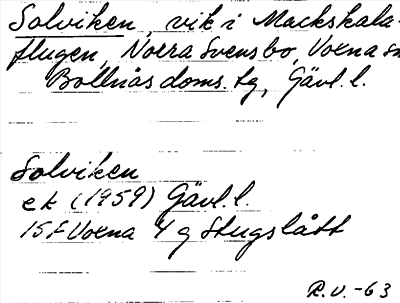 Solviken, vik i Mackskala-
flugen, Norra Svensbo, Voxna sn
Bollnäs doms. tg, Gävl. l.
Solviken
ek (1959) Gävl. l.
15F Voxna 4 g Stugslått
R.V. -63